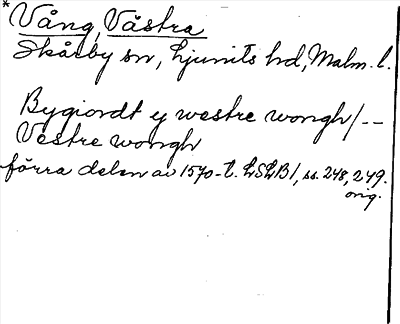 * Vång, Västra
Skårby sn, Ljunits hd, Malm. l.
Bygiordt ej westre wongh/--
Vestre wongh
förra delen av 1570-t. LSLB 1, ss. 248, 249.
orig.